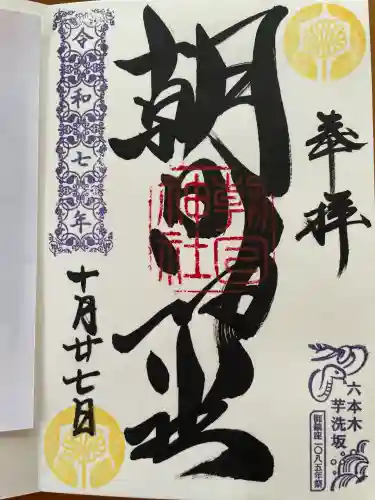 奉拝
六本木
芋洗坂
御鎮座一〇八五年祭
朝日神社
朝日
神社
令和七年
十月廿七日